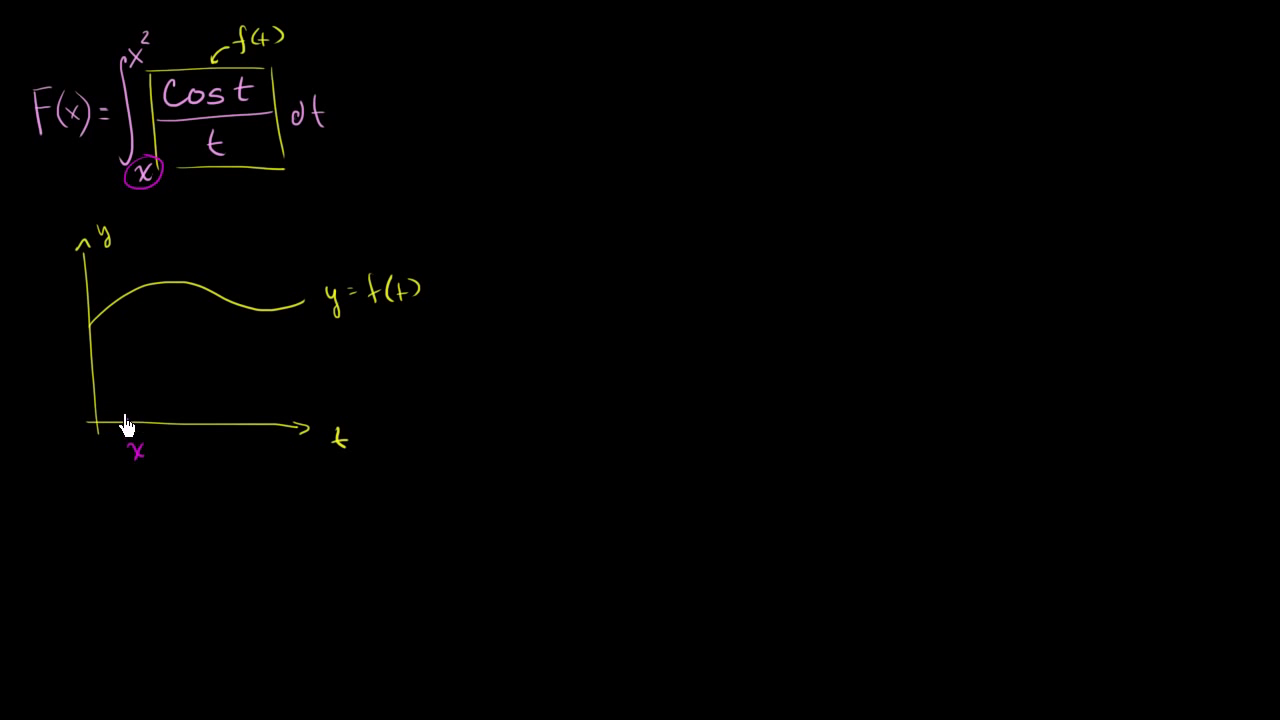 f(t)
F(x) = ∫ₓ^x² cos t / t dt
y
y = f(t)
x
t